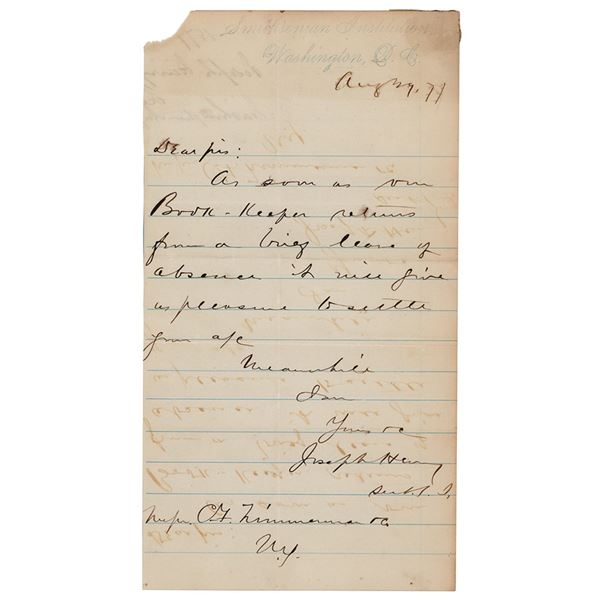 Smithsonian Institution
Washington, D. C.
Aug 29, 77
Dear Sirs:
As soon as our
Book-Keeper returns
from a brief leave of
absence it will give
us pleasure to settle
your a/c
Meanwhile
I am
Yours &c
Joseph Henry
Sect. S. I.
Messrs. C. F. Zimmerman &c
N.Y.